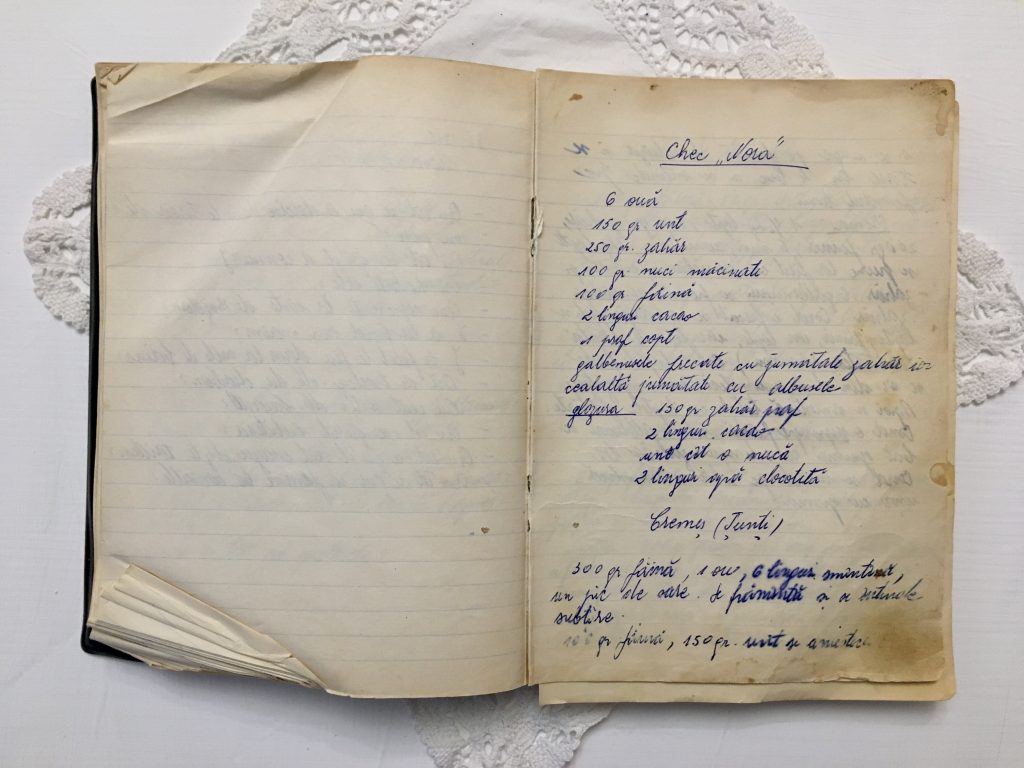 Chec „Nora"
6 ouă
150 gr unt
250 gr. zahăr
100 gr nuci măcinate
100 gr făină
2 linguri cacao
1 praf copt
gălbenușele frecate cu jumătate zahăr iar
cealaltă jumătate cu albușele
glazura 150 gr zahăr praf
2 linguri cacao
unt cît o nucă
2 linguri apă clocotită
Cremeș (Tunți)
300 gr făină, 1 ou, 6 linguri smîntînă,
un pic de sare. Se frămîntă și se întinde
subțire.
gr făină, 150 gr. unt se amestecă